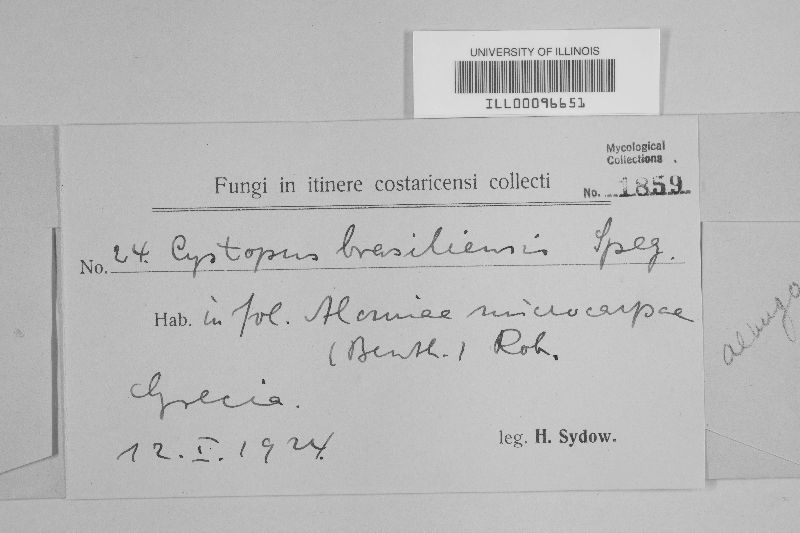 UNIVERSITY OF ILLINOIS
ILL00096651
Mycological
Collections .
Fungi in itinere costaricensi collecti
No. 1859
No. 24. Cystopus brasiliensis Speg.
Hab. in fol. Alomiae microcarpae
(Benth.) Rob.
Grecia.
12. I. 1924.
leg. H. Sydow.
albugo